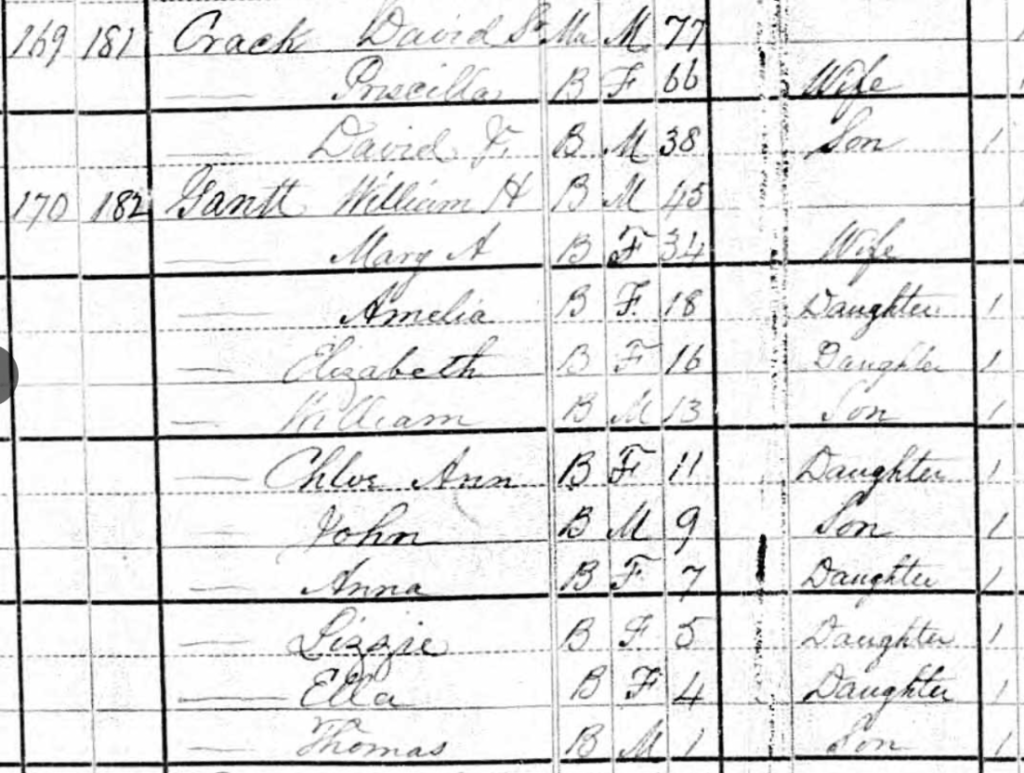 169 181 Crack David Sr Mu M 77
— Priscilla B F 66 Wife
— David Jr B M 38 Son 1
170 182 Gantt William H B M 45
— Mary A B F 34 Wife
— Amelia B F. 18 Daughter 1
— Elizabeth B F 16 Daughter 1
— William B M 13 Son 1
— Chloe Ann B F 11 Daughter 1
— John B M 9 Son 1
— Anna B F 7 Daughter 1
— Lizzie B F. 5 Daughter 1
— Ella B F 4 Daughter 1
— Thomas B M 1 Son 1